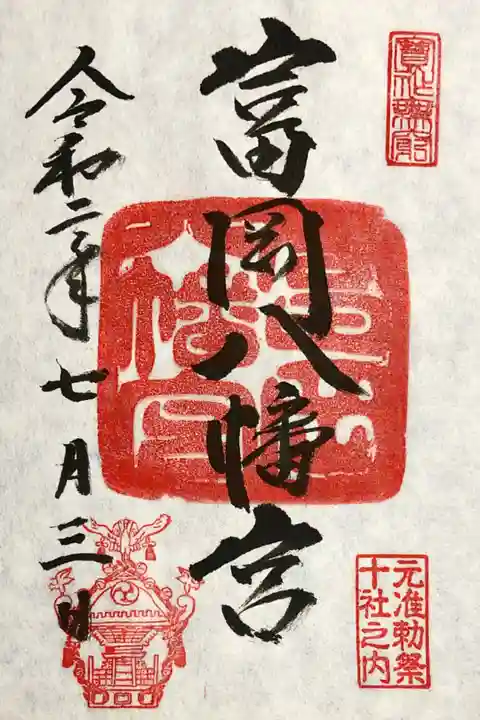 富岡八幡宮
令和二年七月三日
元准勅祭
十社之内